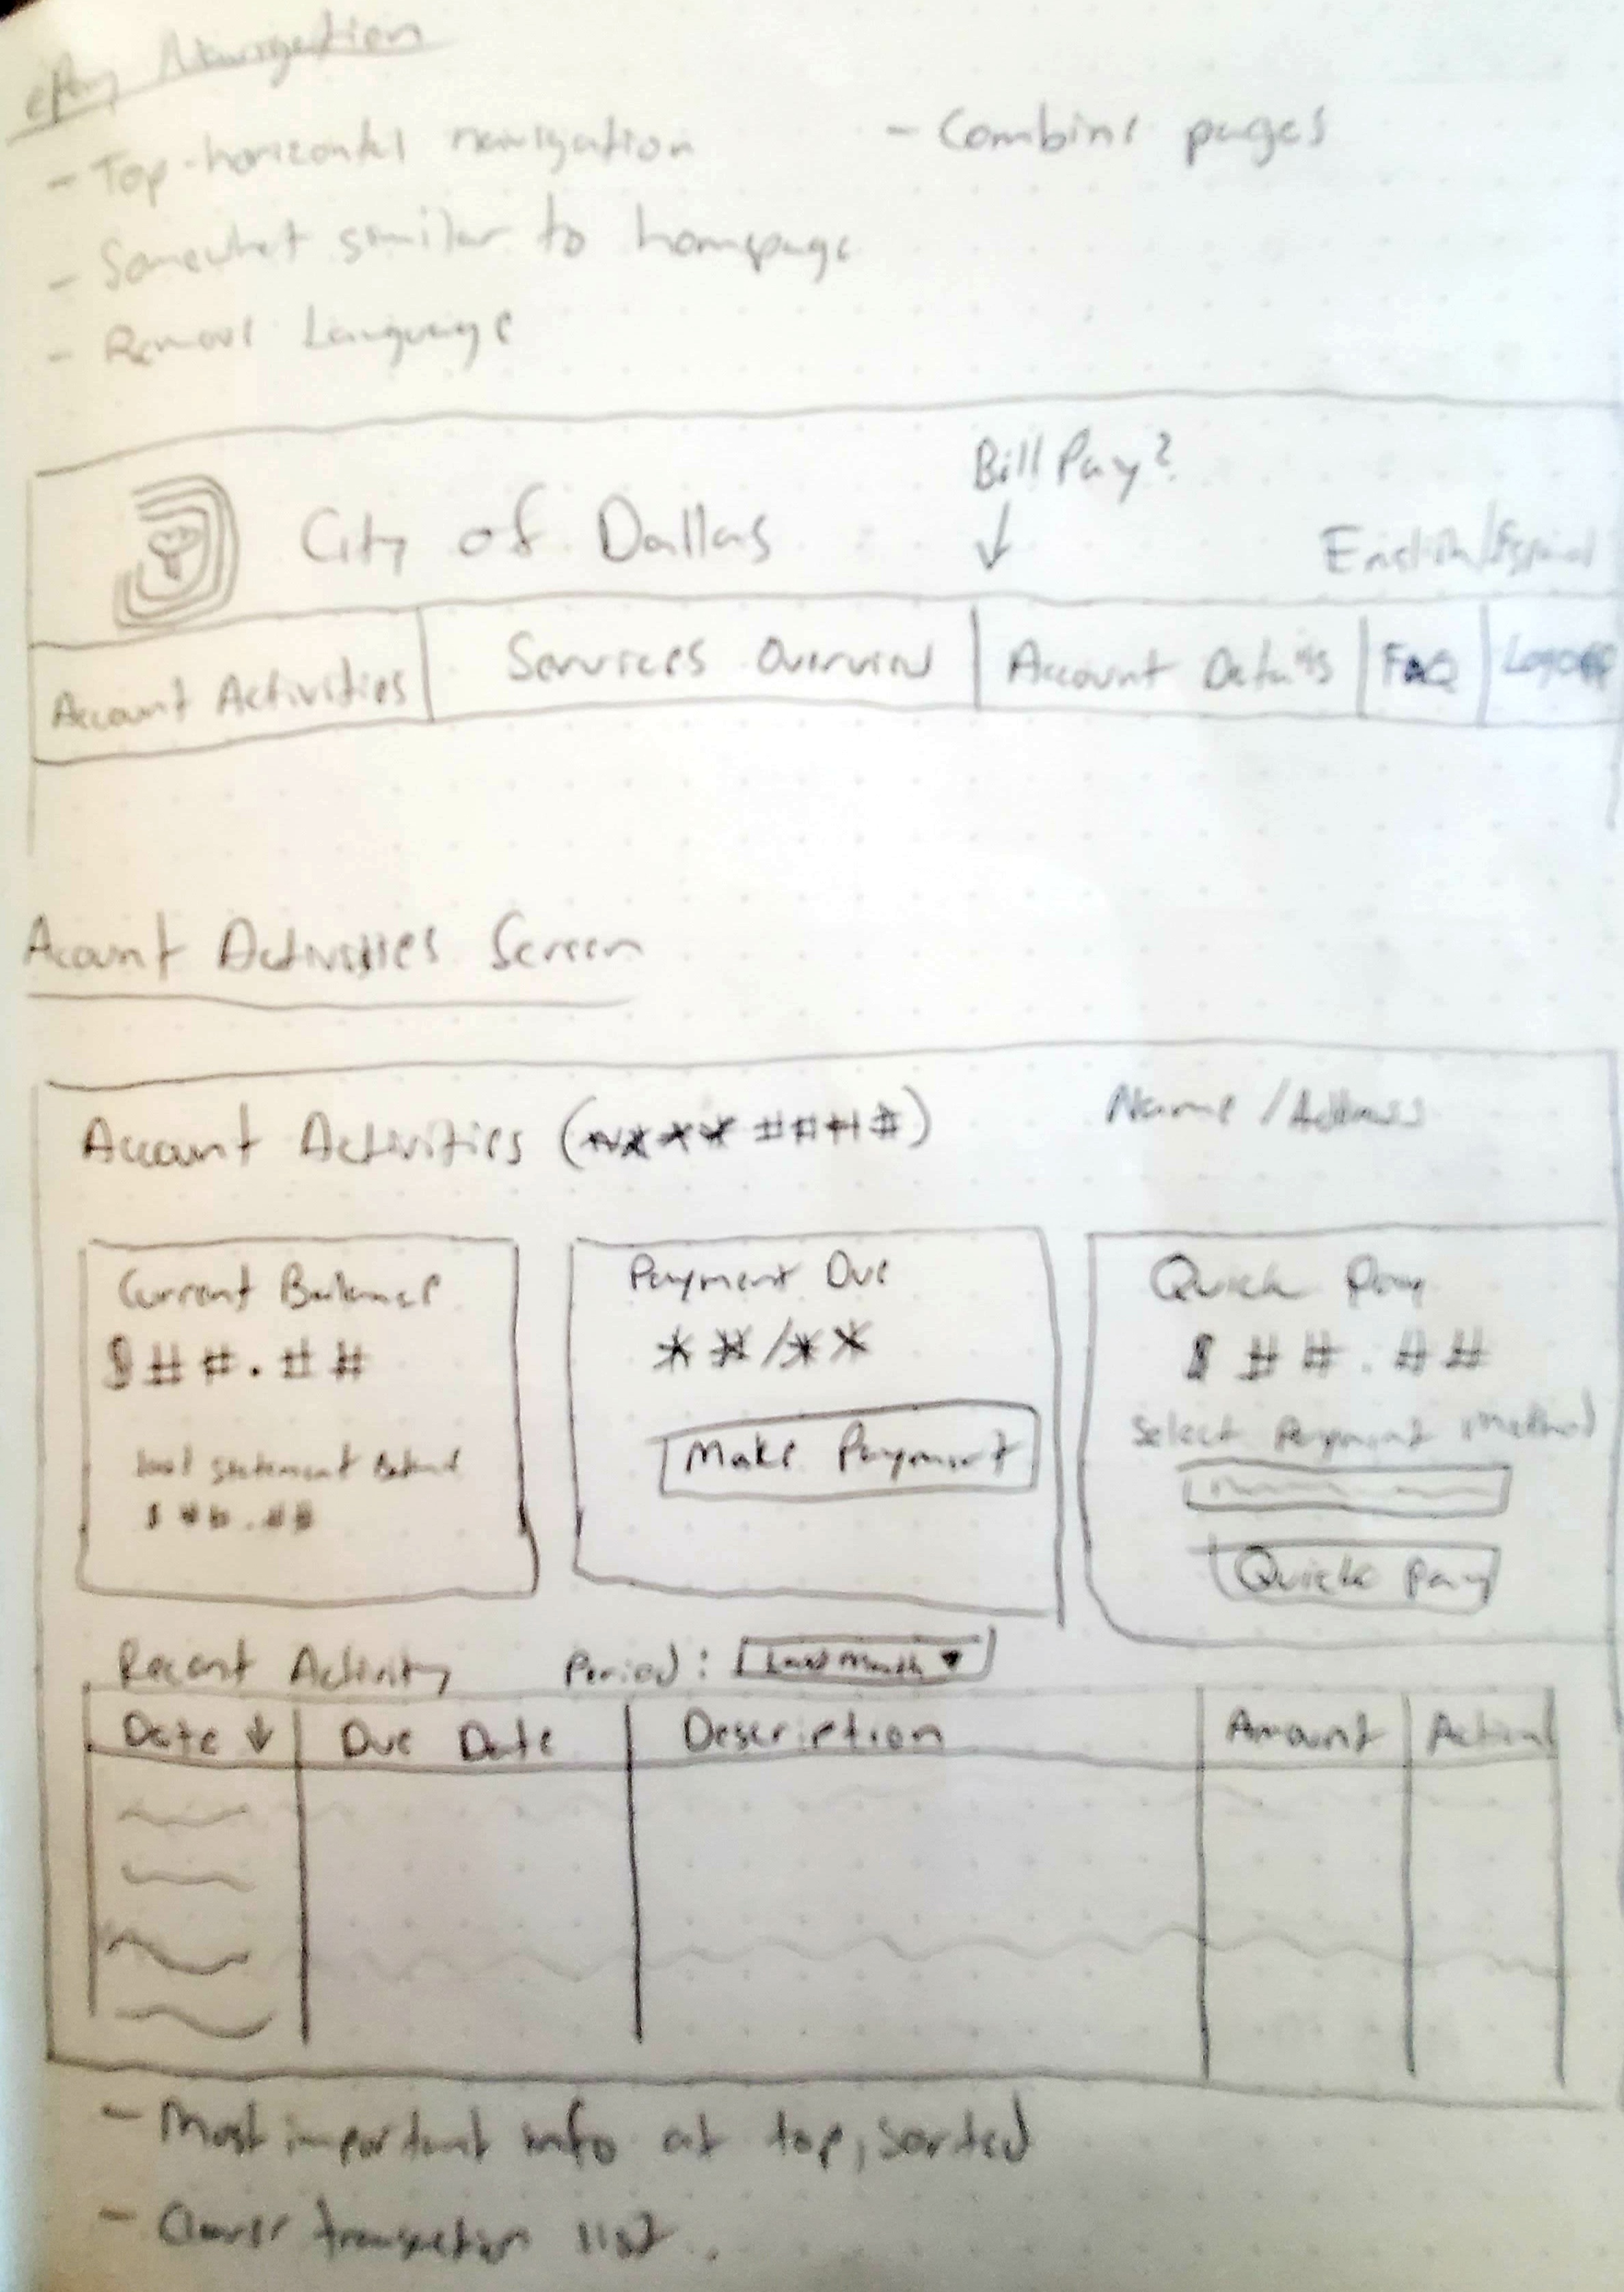 ePay Navigation
- Top-horizontal navigation
- Combine pages
- Somewhat similar to homepage
- Remove Language
Bill Pay?
City of Dallas
English/Español
Account Activities
Services Overview
Account Details
FAQ
Logoff
Acount Activities Screen
Account Activities (**** ####)
Name / Address
Current Balance
$##.##
last statement Balance
$##.##
Payment Due
**/**
Make Payment
Quick Pay
$##.##
Select Payment Method
Quick Pay
Recent Activity
Period: Last Month ▼
Date ↓
Due Date
Description
Amount
Action
- Most important info at top, sorted
- transaction list.